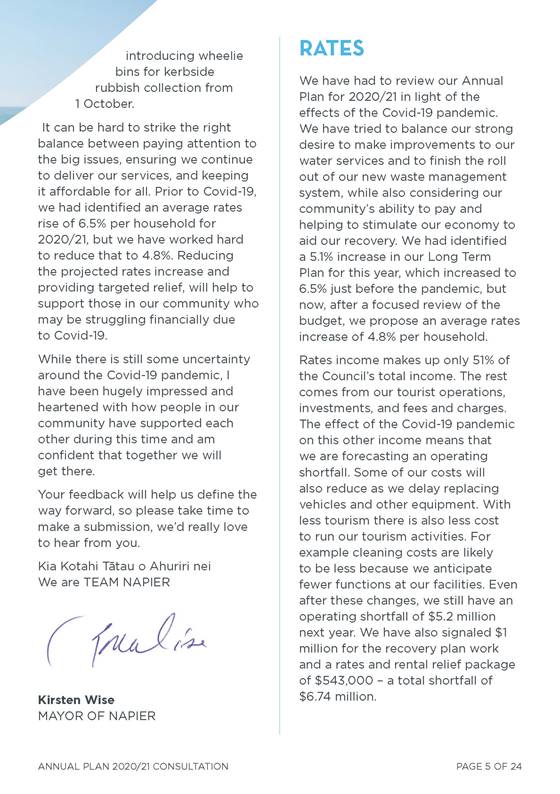 introducing wheelie
bins for kerbside
rubbish collection from
1 October.
It can be hard to strike the right
balance between paying attention to
the big issues, ensuring we continue
to deliver our services, and keeping
it affordable for all. Prior to Covid-19,
we had identified an average rates
rise of 6.5% per household for
2020/21, but we have worked hard
to reduce that to 4.8%. Reducing
the projected rates increase and
providing targeted relief, will help to
support those in our community who
may be struggling financially due
to Covid-19.
While there is still some uncertainty
around the Covid-19 pandemic, I
have been hugely impressed and
heartened with how people in our
community have supported each
other during this time and am
confident that together we will
get there.
Your feedback will help us define the
way forward, so please take time to
make a submission, we'd really love
to hear from you.
Kia Kotahi Tātau o Ahuriri nei
We are TEAM NAPIER
Kirsten Wise
MAYOR OF NAPIER
RATES
We have had to review our Annual
Plan for 2020/21 in light of the
effects of the Covid-19 pandemic.
We have tried to balance our strong
desire to make improvements to our
water services and to finish the roll
out of our new waste management
system, while also considering our
community's ability to pay and
helping to stimulate our economy to
aid our recovery. We had identified
a 5.1% increase in our Long Term
Plan for this year, which increased to
6.5% just before the pandemic, but
now, after a focused review of the
budget, we propose an average rates
increase of 4.8% per household.
Rates income makes up only 51% of
the Council's total income. The rest
comes from our tourist operations,
investments, and fees and charges.
The effect of the Covid-19 pandemic
on this other income means that
we are forecasting an operating
shortfall. Some of our costs will
also reduce as we delay replacing
vehicles and other equipment. With
less tourism there is also less cost
to run our tourism activities. For
example cleaning costs are likely
to be less because we anticipate
fewer functions at our facilities. Even
after these changes, we still have an
operating shortfall of $5.2 million
next year. We have also signaled $1
million for the recovery plan work
and a rates and rental relief package
of $543,000 – a total shortfall of
$6.74 million.
ANNUAL PLAN 2020/21 CONSULTATION
PAGE 5 OF 24